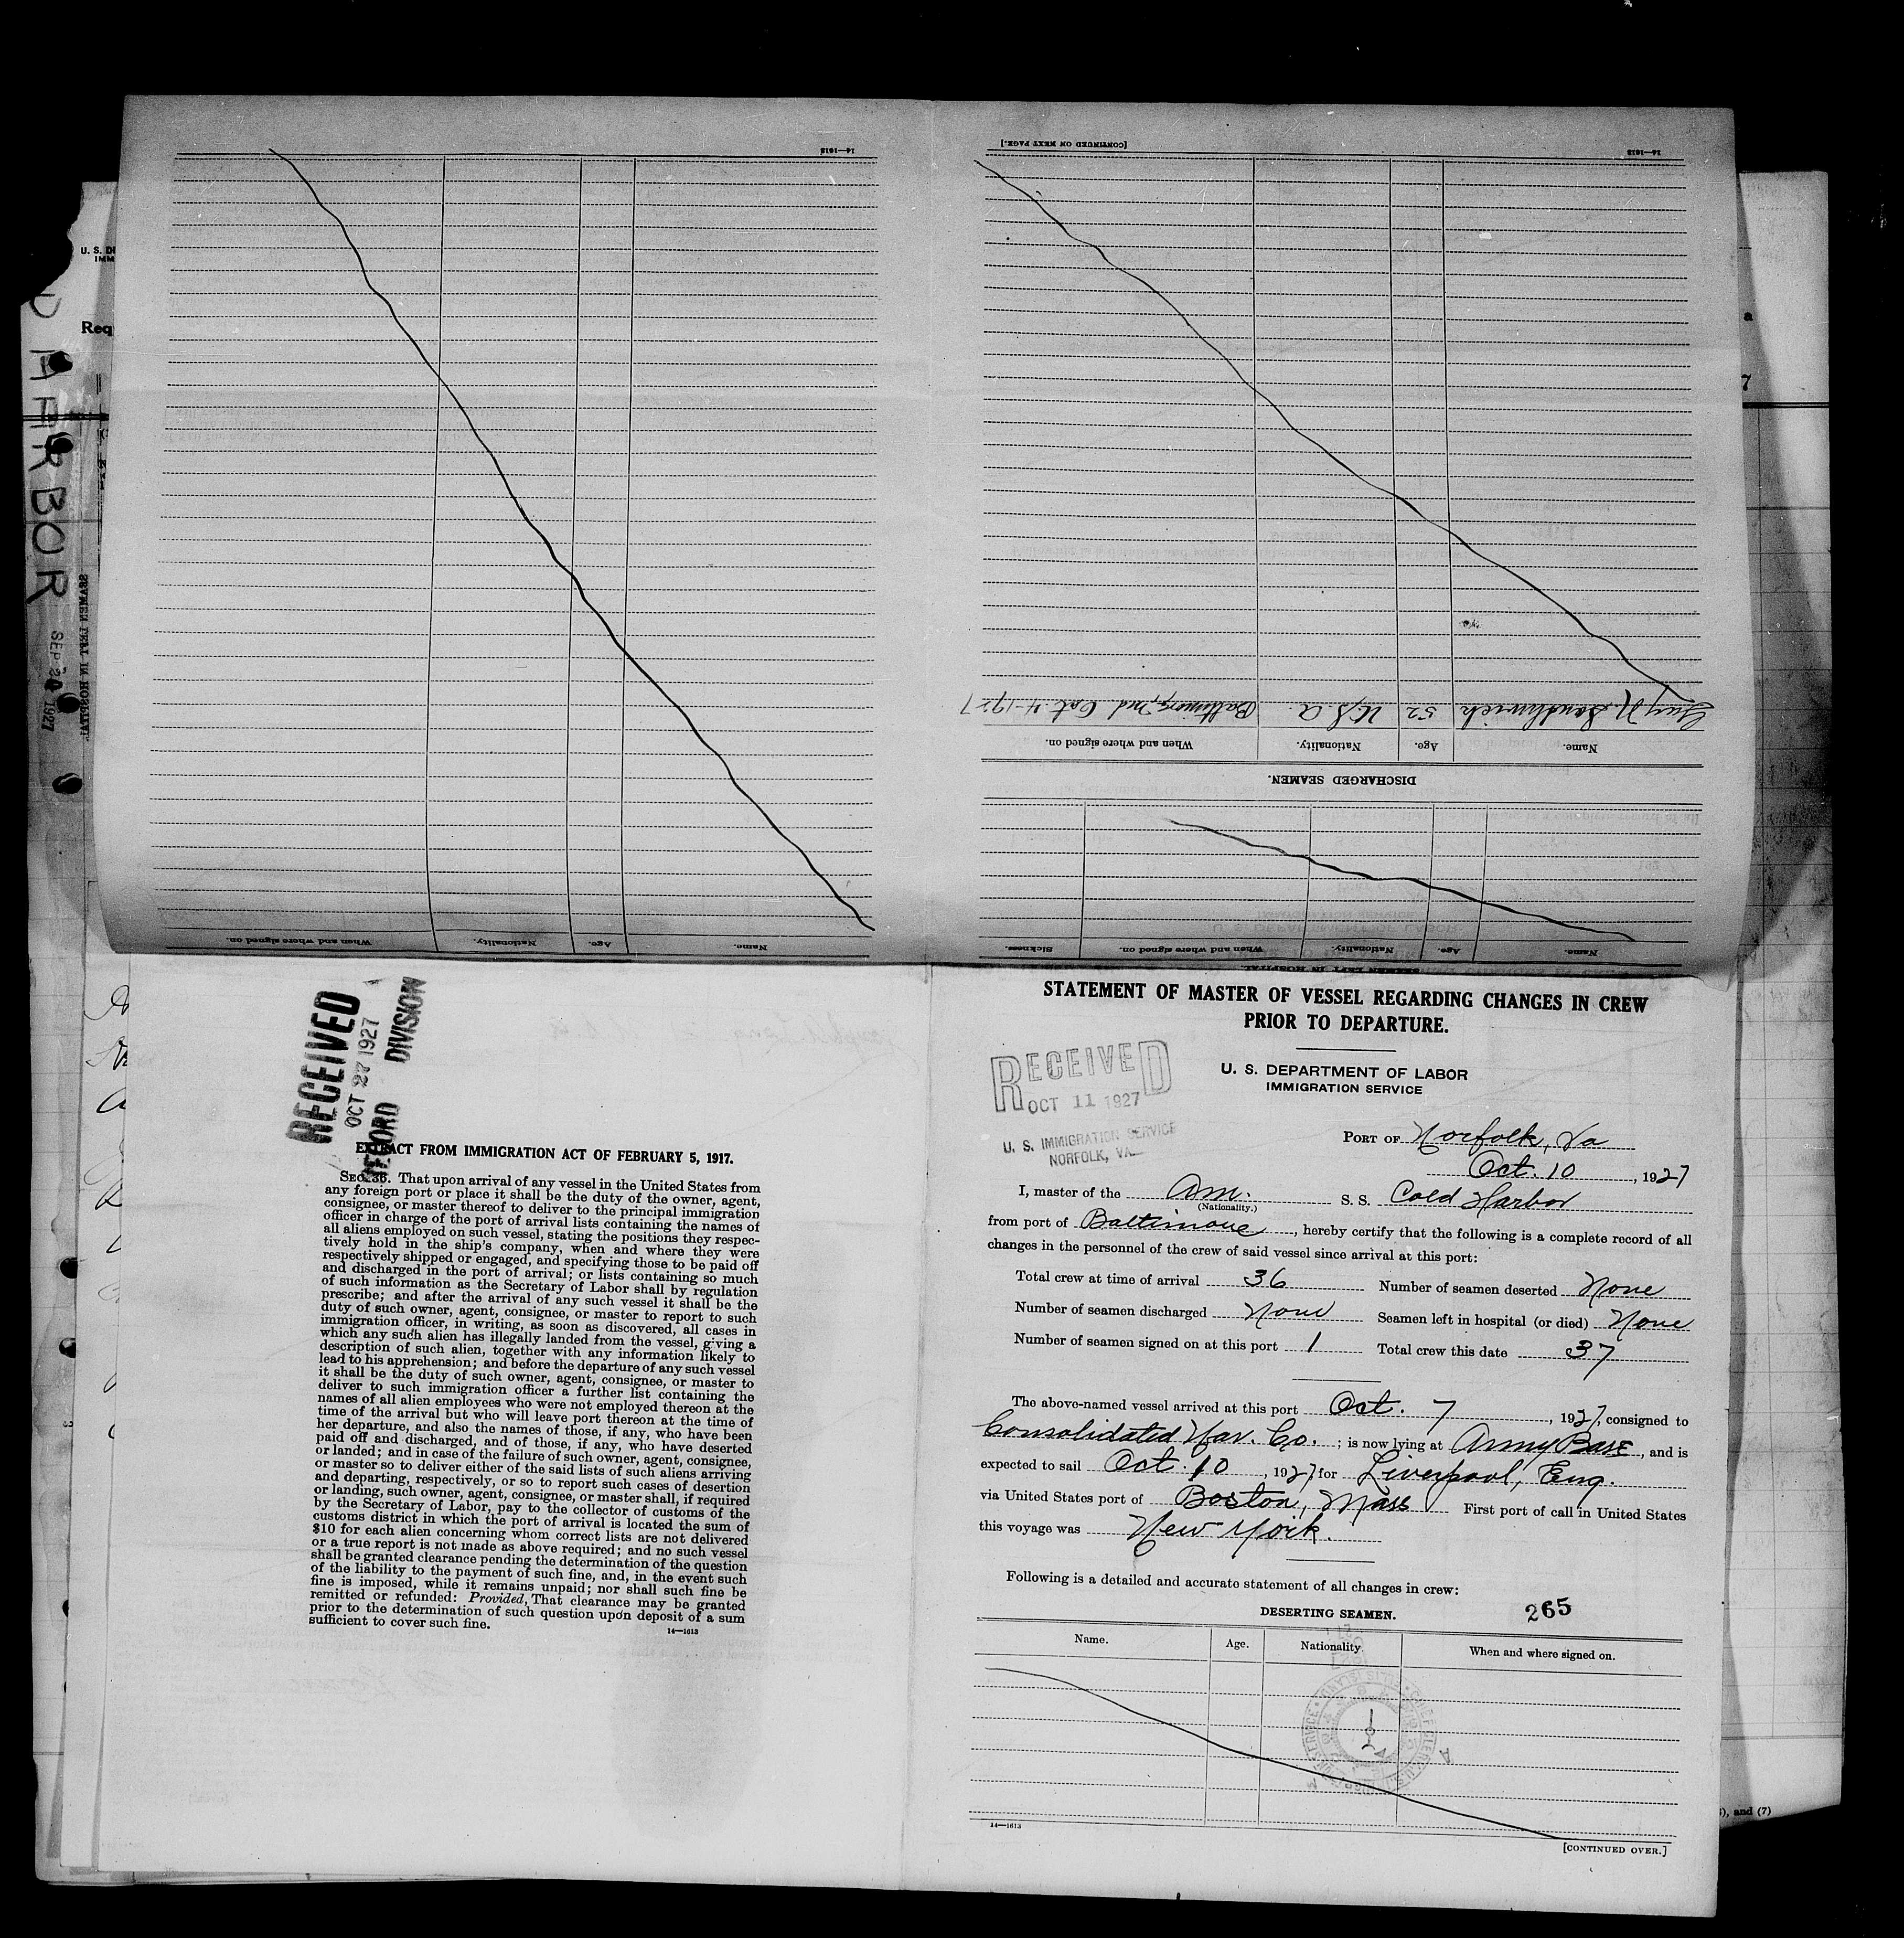 STATEMENT OF MASTER OF VESSEL REGARDING CHANGES IN CREW
PRIOR TO DEPARTURE.
U. S. DEPARTMENT OF LABOR
IMMIGRATION SERVICE
RECEIVED
OCT 11 1927
U. S. IMMIGRATION SERVICE
NORFOLK, VA.
PORT OF Norfolk, Va
Oct. 10, 1927
I, master of the Am. S. S. Cold Harbor
(Nationality.)
from port of Baltimore, hereby certify that the following is a complete record of all
changes in the personnel of the crew of said vessel since arrival at this port:
Total crew at time of arrival 36 Number of seamen deserted None
Number of seamen discharged None Seamen left in hospital (or died) None
Number of seamen signed on at this port 1 Total crew this date 37
The above-named vessel arrived at this port Oct. 7, 1927, consigned to
Consolidated Nav. Co.; is now lying at Army Base, and is
expected to sail Oct. 10, 1927 for Liverpool, Eng.
via United States port of Boston, Mass First port of call in United States
this voyage was New York.
Following is a detailed and accurate statement of all changes in crew:
DESERTING SEAMEN.
265
Name. Age. Nationality. When and where signed on.
14—1613
[CONTINUED OVER.]
RECEIVED
OCT 27 1927
RECORD DIVISION
EXTRACT FROM IMMIGRATION ACT OF FEBRUARY 5, 1917.
SEC. 36. That upon arrival of any vessel in the United States from
any foreign port or place it shall be the duty of the owner, agent,
consignee, or master thereof to deliver to the principal immigration
officer in charge of the port of arrival lists containing the names of
all aliens employed on such vessel, stating the positions they respec-
tively hold in the ship's company, when and where they were
respectively shipped or engaged, and specifying those to be paid off
and discharged in the port of arrival; or lists containing so much
of such information as the Secretary of Labor shall by regulation
prescribe; and after the arrival of any such vessel it shall be the
duty of such owner, agent, consignee, or master to report to such
immigration officer, in writing, as soon as discovered, all cases in
which any such alien has illegally landed from the vessel, giving a
description of such alien, together with any information likely to
lead to his apprehension; and before the departure of any such vessel
it shall be the duty of such owner, agent, consignee, or master to
deliver to such immigration officer a further list containing the
names of all alien employees who were not employed thereon at the
time of the arrival but who will leave port thereon at the time of
her departure, and also the names of those, if any, who have been
paid off and discharged, and of those, if any, who have deserted
or landed; and in case of the failure of such owner, agent, consignee,
or master so to deliver either of the said lists of such aliens arriving
and departing, respectively, or so to report such cases of desertion
or landing, such owner, agent, consignee, or master shall, if required
by the Secretary of Labor, pay to the collector of customs of the
customs district in which the port of arrival is located the sum of
$10 for each alien concerning whom correct lists are not delivered
or a true report is not made as above required; and no such vessel
shall be granted clearance pending the determination of the question
of the liability to the payment of such fine, and, in the event such
fine is imposed, while it remains unpaid; nor shall such fine be
remitted or refunded: Provided, That clearance may be granted
prior to the determination of such question upon deposit of a sum
sufficient to cover such fine.
14—1613
SEAMEN LEFT IN HOSPITAL.
Name. Age. Nationality. When and where signed on. Sickness.
DISCHARGED SEAMEN.
Name. Age. Nationality. When and where signed on.
Guy N. 52 U S A Baltimore, Md Oct. 4-1927
14—1613
[CONTINUED ON NEXT PAGE.]
Name. Age. Nationality. When and where signed on.
14—1613
HARBOR
SEP 1927
SEAMEN LEFT IN HOSPITAL
U. S. DE
IMM
Req
), and (7)